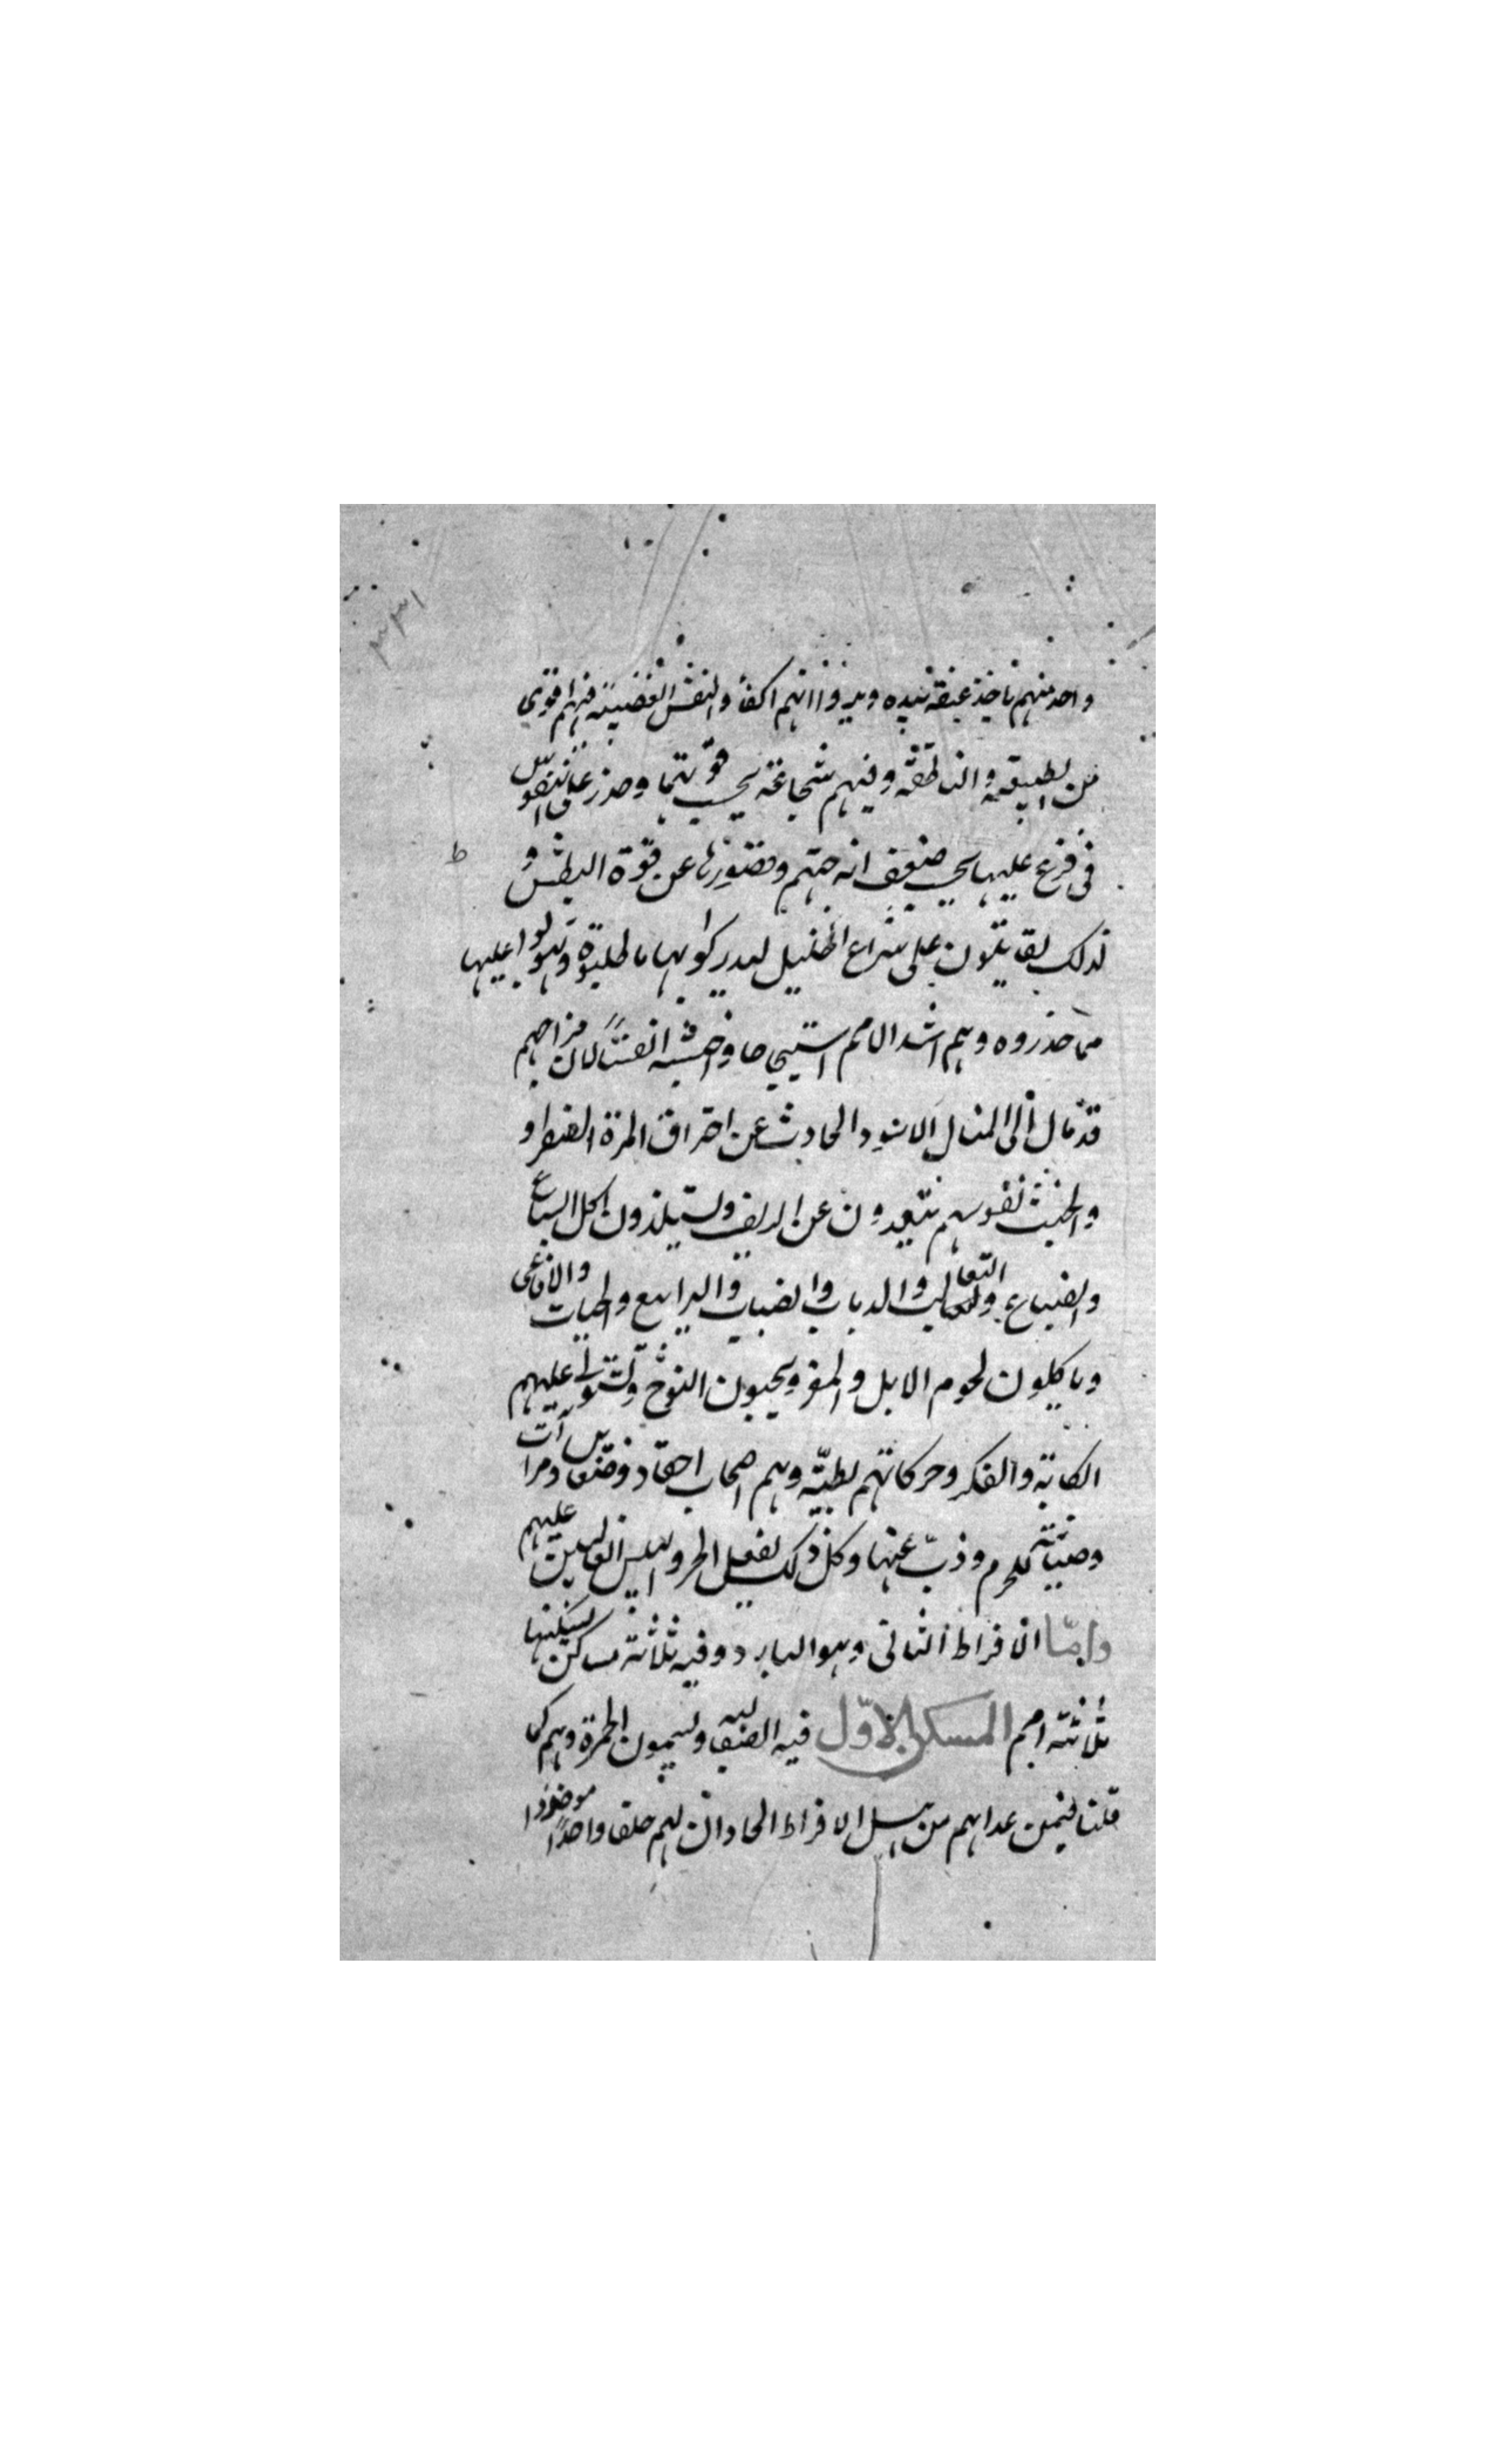 واحد منهم ياخذ عنقه بيده ويروا انهم اكفأ والنفس الغضبية فيهم اقوى
من الطبيعة والناطقة وفيهم شجاعة بحسب قوتها وحذر على النفوس
فى فزع عليها بحسب ضعف امزجتهم وقصورها عن قوة البطش و
لذلك يقاتلون على سراع الخيل ليدركوا بها ما طلبوه ويتولوا عليها
مما حذروه وهم اشد الامم استيحاشا واخبثه انفسا لان مزاجهم
قد مال الى الاسود الحادث عن احتراق المرة الصفراو
ولخبث نفوسهم يتبعدون عن الريف ويستلذون اكل السباع
والضباع والثعالب والدباب والضباب واليرابيع والحيات والافاعى
وياكلون لحوم الابل والمعز ويحبون النوح وتستولى عليهم
الكابة والفكر وحركاتهم بطيّة وهم اصحاب احقاد وضغاين
وصيانة للحرم وذبّ عنها وكل ذلك بفعل الحر واليبس الغالبين عليهم
وامّا الافراط الثانى وهو البارد وفيه ثلاثة مساكن يسكنها
ثلاثة امم المسكن الاوّل فيه الصقالبه ويسمون الحمرة وهم كما
قلنا فيمن عداهم من اهل الافراط الحار ان لهم خلقا واحدًا